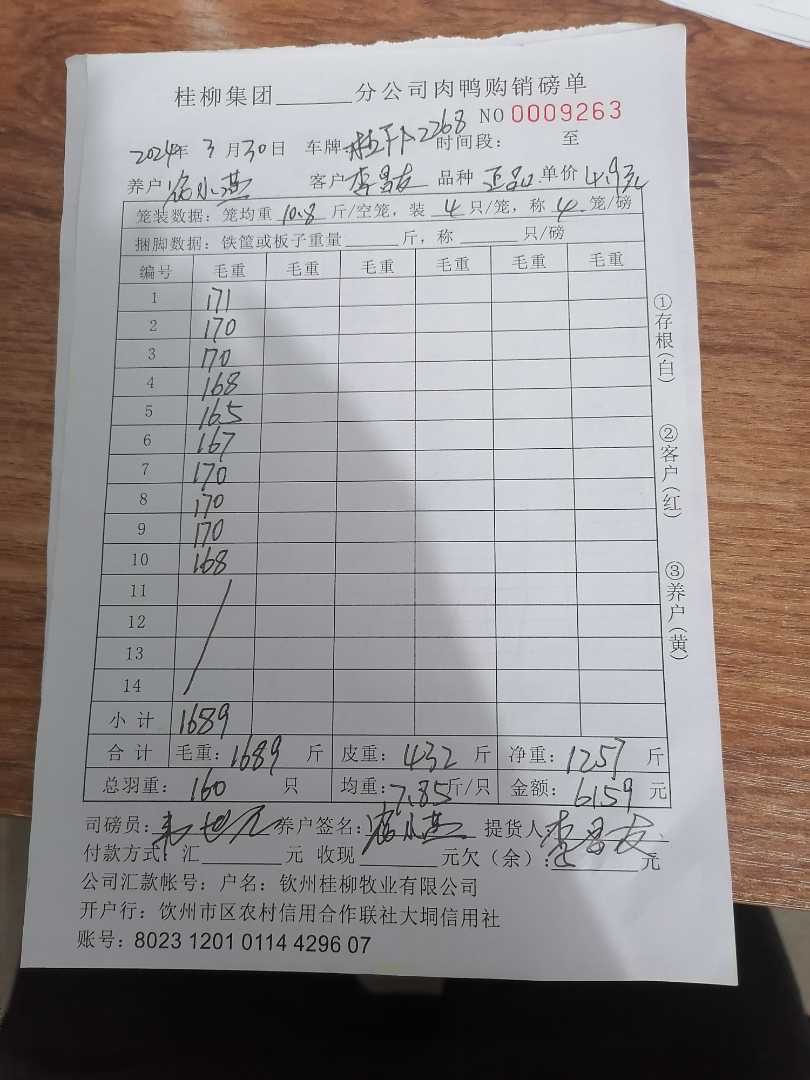 桂柳集团______分公司肉鸭购销磅单
NO 0009263
2024年 3月30日 车牌: 2268 时间段: 至
养户: 小燕 客户 李昌友 品种 正品 单价 4.9元
笼装数据: 笼均重 10.8 斤/空笼, 装 4 只/笼, 称 4 笼/磅
捆脚数据: 铁筐或板子重量______斤, 称______只/磅
编号 毛重 毛重 毛重 毛重 毛重 毛重
1 171
2 170
3 170
4 168
5 165
6 167
7 170
8 170
9 170
10 168
11
12
13
14
小计 1689
合计 毛重: 1689 斤 皮重: 432 斤 净重: 1257 斤
总羽重: 160 只 均重: 7.85斤/只 金额: 6159 元
司磅员: 养户签名: 小燕 提货人: 李昌友
付款方式: 汇______元 收现______元欠(余):______元
公司汇款帐号: 户名: 钦州桂柳牧业有限公司
开户行: 钦州市区农村信用合作联社大垌信用社
账号: 8023 1201 0114 4296 07
①存根(白)
②客户(红)
③养户(黄)